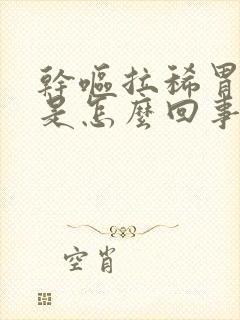 幹嘔拉稀胃
是怎麼回事
空肖